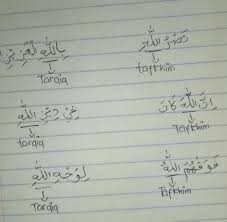 نَصْرُ اللّٰهِ بِاللّٰهِ
tafkhim Tarqiq
اِنَّ اللّٰهَ كَانَ فِيْ دِيْنِ اللّٰهِ
Tafkhim Tarqiq
فَوْقَهُمُ اللّٰهُ لِوَجْهِ اللّٰهِ
Tafkhim Tarqiq